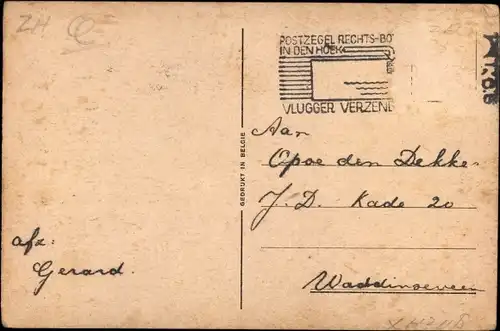 ZH
POSTZEGEL RECHTS-BO
IN DEN HOEK
VLUGGER VERZEND
Aan
Opoe den Dekke
J.D. Kade 20
Waddinxveen
afz:
Gerard.
GEDRUKT IN BELGIE